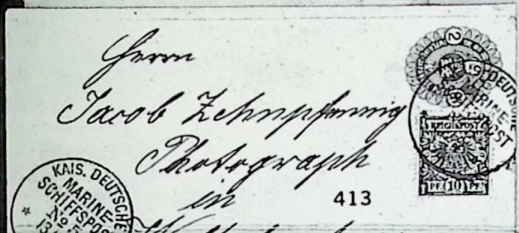 Herrn
Jacob Zehnpfennig
Photograph
in
413
KAIS. DEUTSCHE
MARINE-
SCHIFFSPOST
No 5
13/
DEUTSCHE
MARINE-
POST
REICHSPOST
PF. 10 PF.
2